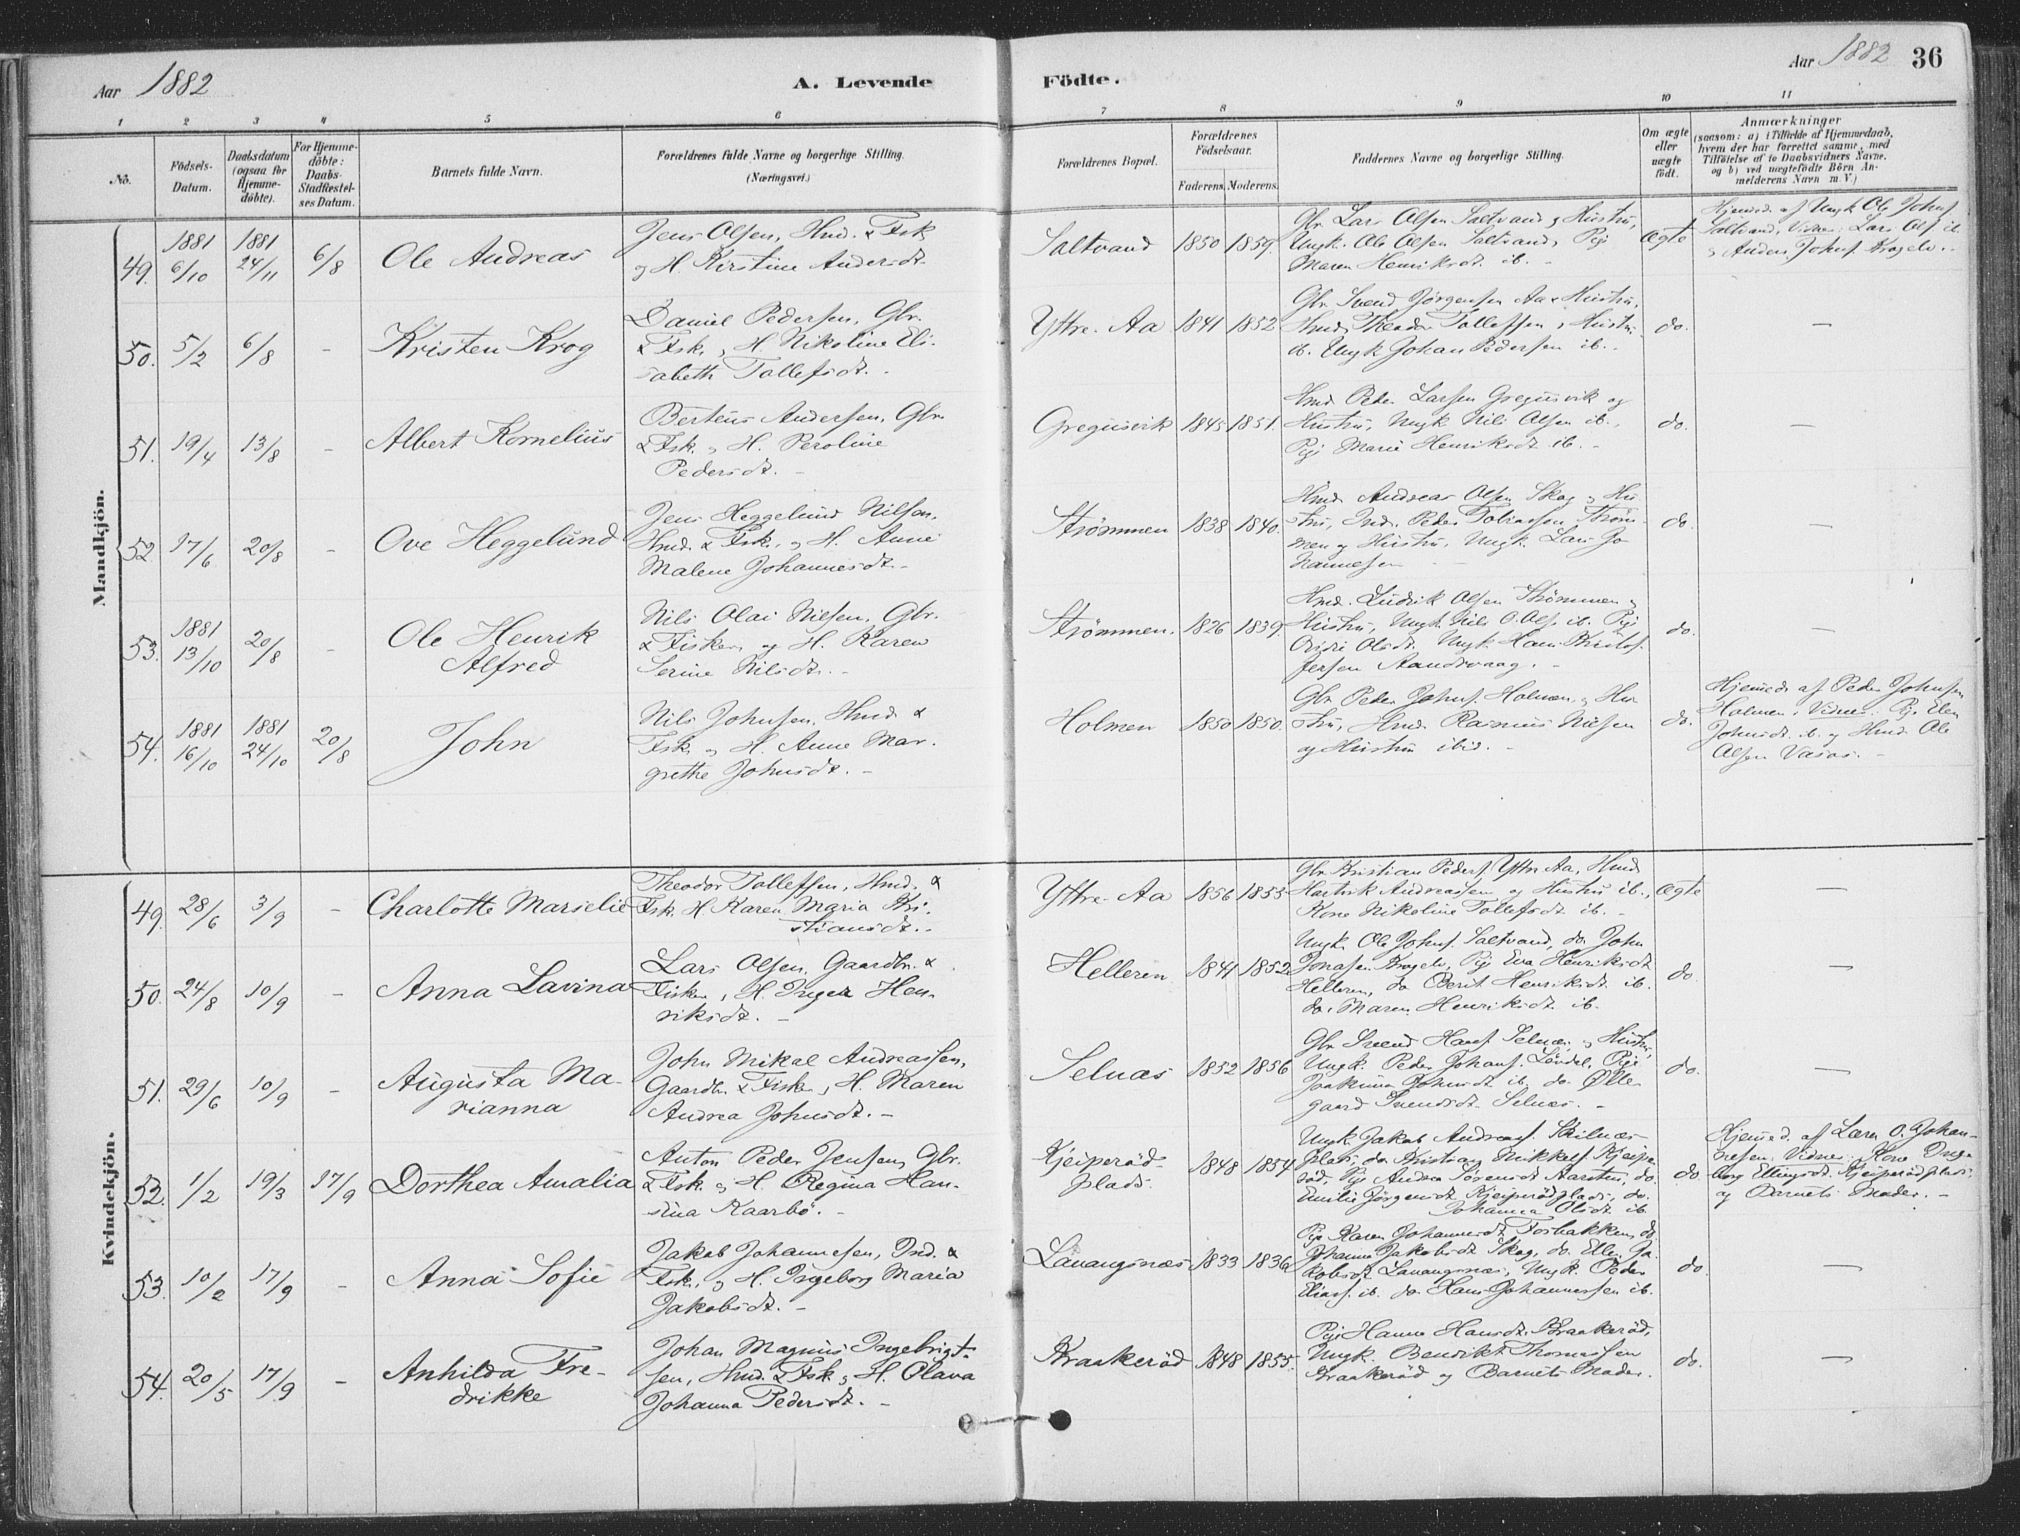 Aar 1882
A. Levende
Födte.
Aar 1882 36
1 2 3 4 5 6 7 8 9 10 11
No.
Födsels-Datum.
Daabsdatum (ogsaa for Hjemmedöbte).
For Hjemmedöbte: Daabs-Stadfæstelses Datum.
Barnets fulde Navn.
Forældrenes fulde Navne og borgerlige Stilling. (Næringsvei.)
Forældrenes Bopæl.
Forældrenes Födselsaar.
Faderens. Moderens.
Faddernes Navne og borgerlige Stilling.
Om ægte eller uægte födt.
Anmærkninger
(saasom: a) i Tilfælde af Hjemmedaab, hvem der har forrettet samme, med Tilföielse af to Daabsvidners Navne. og b) ved uægtefödte Börn Anmelderens Navn m. V.)
Mandkjön.
49. 1881 6/10 1881 24/11 6/8 Ole Andreas
Jens Olsen, Hmd. & Fsk.
og H. Kirstine Andersdt.
Saltvand 1850 1859.
Gbr. Lars Olsen Saltvand, Hustru,
Ungk. Ole Olsen Saltvand, Pige
Maren Henriksdt. ib. -
Ægte
Hjemed. af Ungk. Ole Johns.
Saltvand, Vidner: Lars Ols. ib.
, Anders Johns. Krogelv.
50. 5/2 6/8 - Kristen Krog
Daniel Pedersen, Gbr.
& Fsk., H. Nikoline Eli-
sabeth Tollefsdt. -
Yttre-Aa 1841 1852
Gbr. Svend Jörgensen Aa & Hustru,
Hmd. Theodor Tollefsen, Hustru
ib. Ungk. Johan Pedersen ib. -
do. -
51. 19/4 13/8 - Albert Kornelius
Berteus Andersen, Gbr.
& Fsk., H. Peroline
Pedersdt. -
Gregusvik 1845 1851.
Hmd. Peder Larsen Gregusvik og
Hustru, Ungk. Nils Olsen ib.,
Pige Marie Henriksdt. ib. -
do. -
52. 17/6 20/8 - Ove Heggelund
Jens Heggelund Nilsen,
Hmd. & Fsk., og H. Anne
Malene Johannesdt. -
Strömmen 1838 1840.
Hmd. Andreas Olsen Skog, Hu-
stru, Ind. Peder Tobiassen Ström-
men og Hustru, Ungk. Lars Jo-
hannesen -
do. -
53. 1881 13/10 20/8 - Ole Henrik
Alfred
Nils Olai Nilsen, Gbr.
& Fisker, og H. Karen
Serine Nilsdt. -
Strömmen. 1826 1839
Hmd. Ludvik Olsen Strömmen,
Hustru, Ungk. Nils O. Ols. ib. Pige
Olsdt. Ungk. Hans Kristof.
Jensen Aandervaag. -
do. -
54. 1881 16/10 1881 24/10 20/8 John
Nils Johnsen, Hmd. &
Fsk. og H. Anne Mar-
grethe Johnsdt. -
Holmen 1850 1850.
Gbr. Peder Johns. Holmen, Hu-
stru, Hmd. Rasmus Nilsen
og Hustru ibid. -
do.
Hjemed. af Peder Johnsen
Holmen, Vidner: Pige Elen
Johnsdt. ib. og Hmd. Ole
Olsen Vasaas. -
Kvindekjön.
49. 28/6 3/9 - Charlotte Marselie
Theodor Tollefsen, Hmd. &
Fsk. H. Karen Maria Kri-
stiansdt. -
Yttre-Aa 1856 1853
Gbr. Kristian Peders. Yttre Aa, Hmd.
Hartvik Andreassen og Hustru ib.,
Kone Nikoline Tollefsdt. ib. -
Ægte -
50. 24/8 10/9 - Anna Lavina
Lars Olsen, Gaardbr. &
Fisker, H. Inger Hen-
riksdt. -
Helleren 1841 1852
Ungk. Ole Johns. Saltvand, do. John
Jonasen Krogelv, Pige Eva Henriksdt.
Helleren, do. Berit Henriksdt. ib.
do. Maren Henriksdt. ib.
do. -
51. 29/6 10/9 - Augusta Ma-
rianna
John Mikal Andreassen,
Gaardbr. & Fisker, H. Maren
Andrea Johnsdt. -
Selnæs 1852 1856
Gbr. Svend Hans. Selnæs, Hustru,
Ungk. Peder Johans. Löndal, Pige
Joakima Johnsdt. ib. do. Olle-
gaard Svendsdt. Selnæs. -
do. -
52. 1/2 19/3 17/9 Dorthea Amalia
Anton Peder Jensen, Gbr.
& Fsk. og H. Regina Han-
sina Kaarbö. -
Kjeiperöd-
plads. 1848 1854
Ungk. Jakob Andreas. Skilnæs-
plads, do. Kristian Mikkels. Kjeipe-
röd, Pige Andrea Sörensdt. Aarsten, do.
Emilie Jörgensdt. Kjeiperödplads, do.
Johanna Olsdt. ib.
do.
Hjemed. af Lærer O. Johan-
nesen. Vidner: Kone Inge-
borg Ellingsdt. Kjeiperödplads
og Barnets Moder. -
53. 10/2 17/9 - Anna Sofie
Jakob Johannesen, Ind. &
Fsk., og H. Ingeborg Maria
Jakobsdt. -
Lavangsnæs 1833 1836
Pige Karen Johannesdt. Forbakken, do.
Johanna Jakobsdt. Skog, do. Ellen Ja-
kobsdt. Lavangsnæs, Ungk. Peder
Elias. ib. do. Hans Johannessen ib.
do. -
54. 20/5 17/9 - Anhilda Fre-
drikke
Johan Magnus Ingebrigt-
sen, Hmd. & Fsk., H. Olava
Johanna Pedersdt. -
Kraakeröd 1848 1855.
Pige Hanna Hansdt. Kraakeröd,
Ungk. Bendikt Thomassen
Kraakeröd og Barnets Moder.
do. -